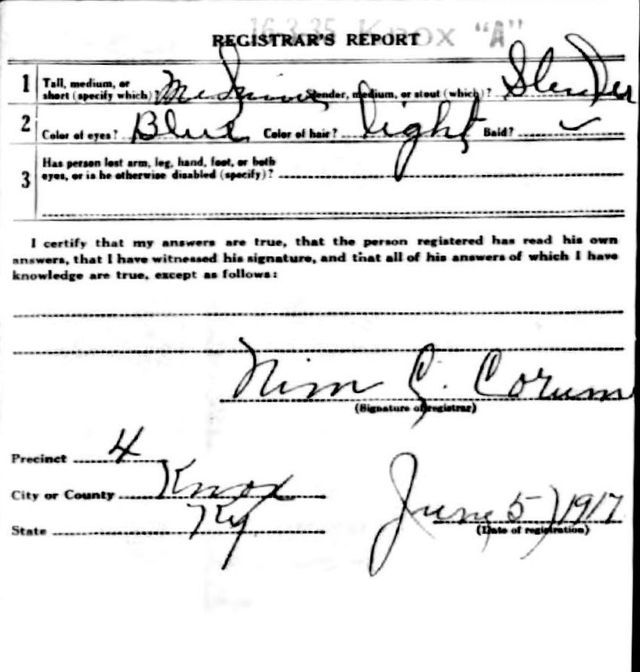 16-3-35 Knox "A"
REGISTRAR'S REPORT
1 Tall, medium, or short (specify which)? Medium Slender, medium, or stout (which)? Slender
2 Color of eyes? Blue Color of hair? light Bald? ✓
3 Has person lost arm, leg, hand, foot, or both
eyes, or is he otherwise disabled (specify)?
I certify that my answers are true, that the person registered has read his own
answers, that I have witnessed his signature, and that all of his answers of which I have
knowledge are true, except as follows:
Nim G. Corum
(Signature of registrar)
Precinct 4
City or County Knox
State Ky.
June 5 1917
(Date of registration)